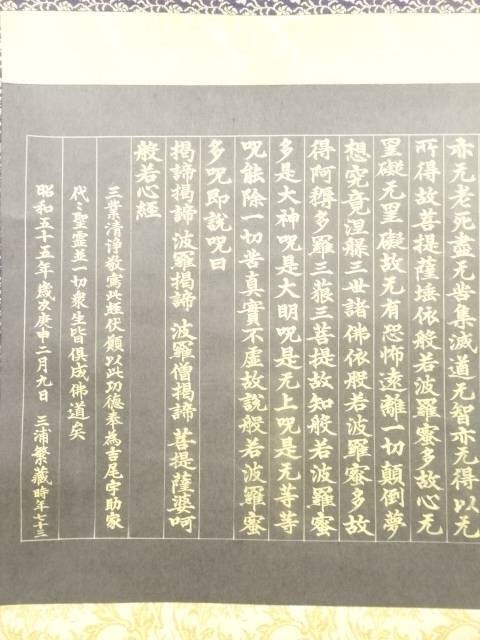 亦无老死盡无苦集滅道无智亦无得以无
所得故菩提薩埵依般若波羅蜜多故心无
罣礙无罣礙故无有恐怖遠離一切顛倒夢
想究竟涅槃三世諸佛依般若波羅蜜多故
得阿耨多羅三藐三菩提故知般若波羅蜜
多是大神呪是大明呪是无上呪是无等等
呪能除一切苦真實不虛故說般若波羅蜜
多呪即說呪曰
揭諦揭諦 波羅揭諦 波羅僧揭諦 菩提薩婆呵
般若心經
三業清淨敬寫此經伏願以此功德奉為吉尾宇助家
代々聖靈並一切衆生皆俱成佛道矣
昭和五十五年歲次庚申二月九日 三浦繁藏時年七十三